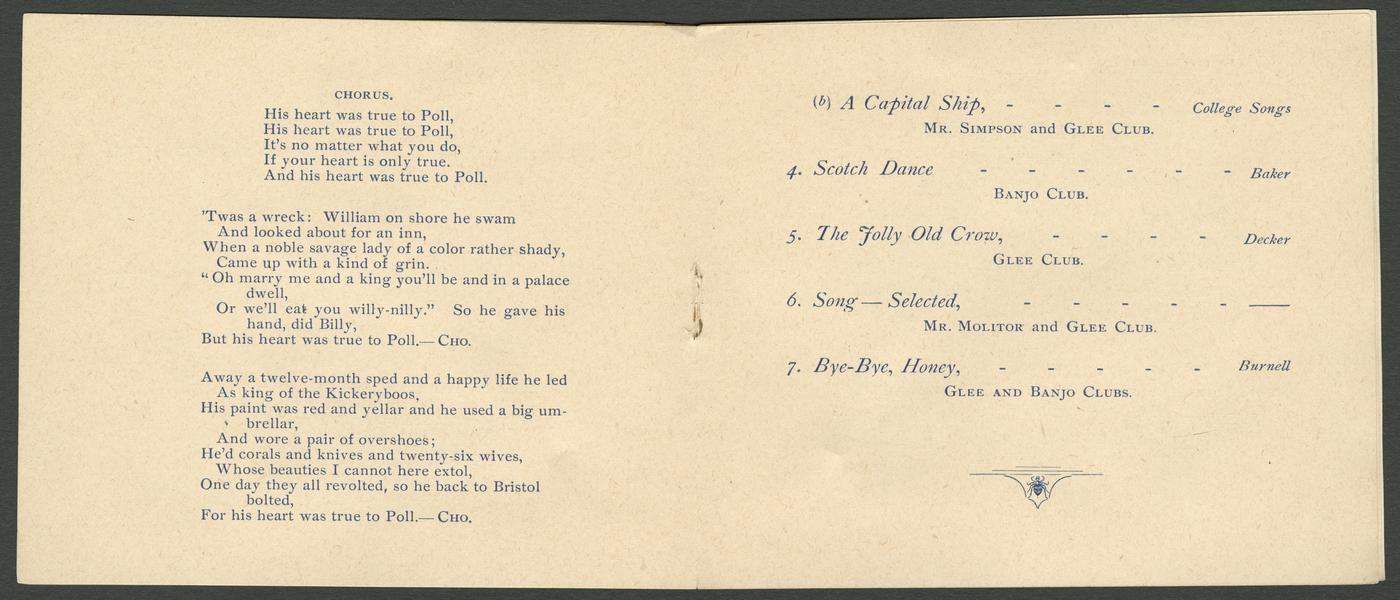 CHORUS.
His heart was true to Poll,
His heart was true to Poll,
It's no matter what you do,
If your heart is only true.
And his heart was true to Poll.
'Twas a wreck: William on shore he swam
And looked about for an inn,
When a noble savage lady of a color rather shady,
Came up with a kind of grin.
"Oh marry me and a king you'll be and in a palace
dwell,
Or we'll eat you willy-nilly." So he gave his
hand, did Billy,
But his heart was true to Poll.—CHO.
Away a twelve-month sped and a happy life he led
As king of the Kickeryboos,
His paint was red and yellar and he used a big um-
brellar,
And wore a pair of overshoes;
He'd corals and knives and twenty-six wives,
Whose beauties I cannot here extol,
One day they all revolted, so he back to Bristol
bolted,
For his heart was true to Poll.—CHO.
(b) A Capital Ship, - - - - College Songs
MR. SIMPSON and GLEE CLUB.
4. Scotch Dance - - - - - - Baker
BANJO CLUB.
5. The Jolly Old Crow, - - - - Decker
GLEE CLUB.
6. Song — Selected, - - - - - ——
MR. MOLITOR and GLEE CLUB.
7. Bye-Bye, Honey, - - - - - Burnell
GLEE AND BANJO CLUBS.